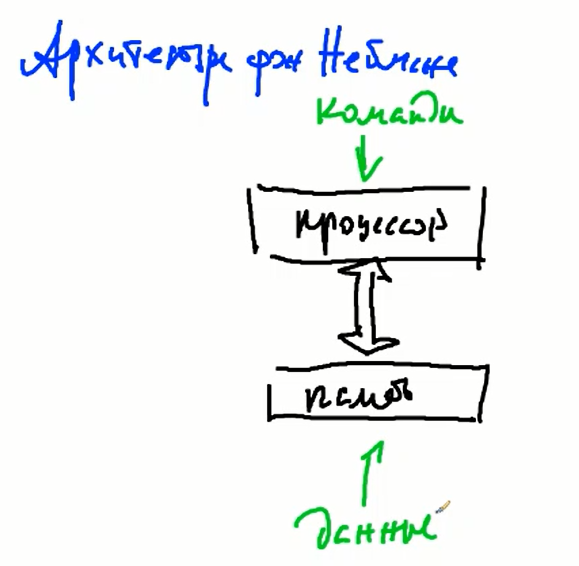 Архитектура фон Неймана
команды
процессор
память
данные